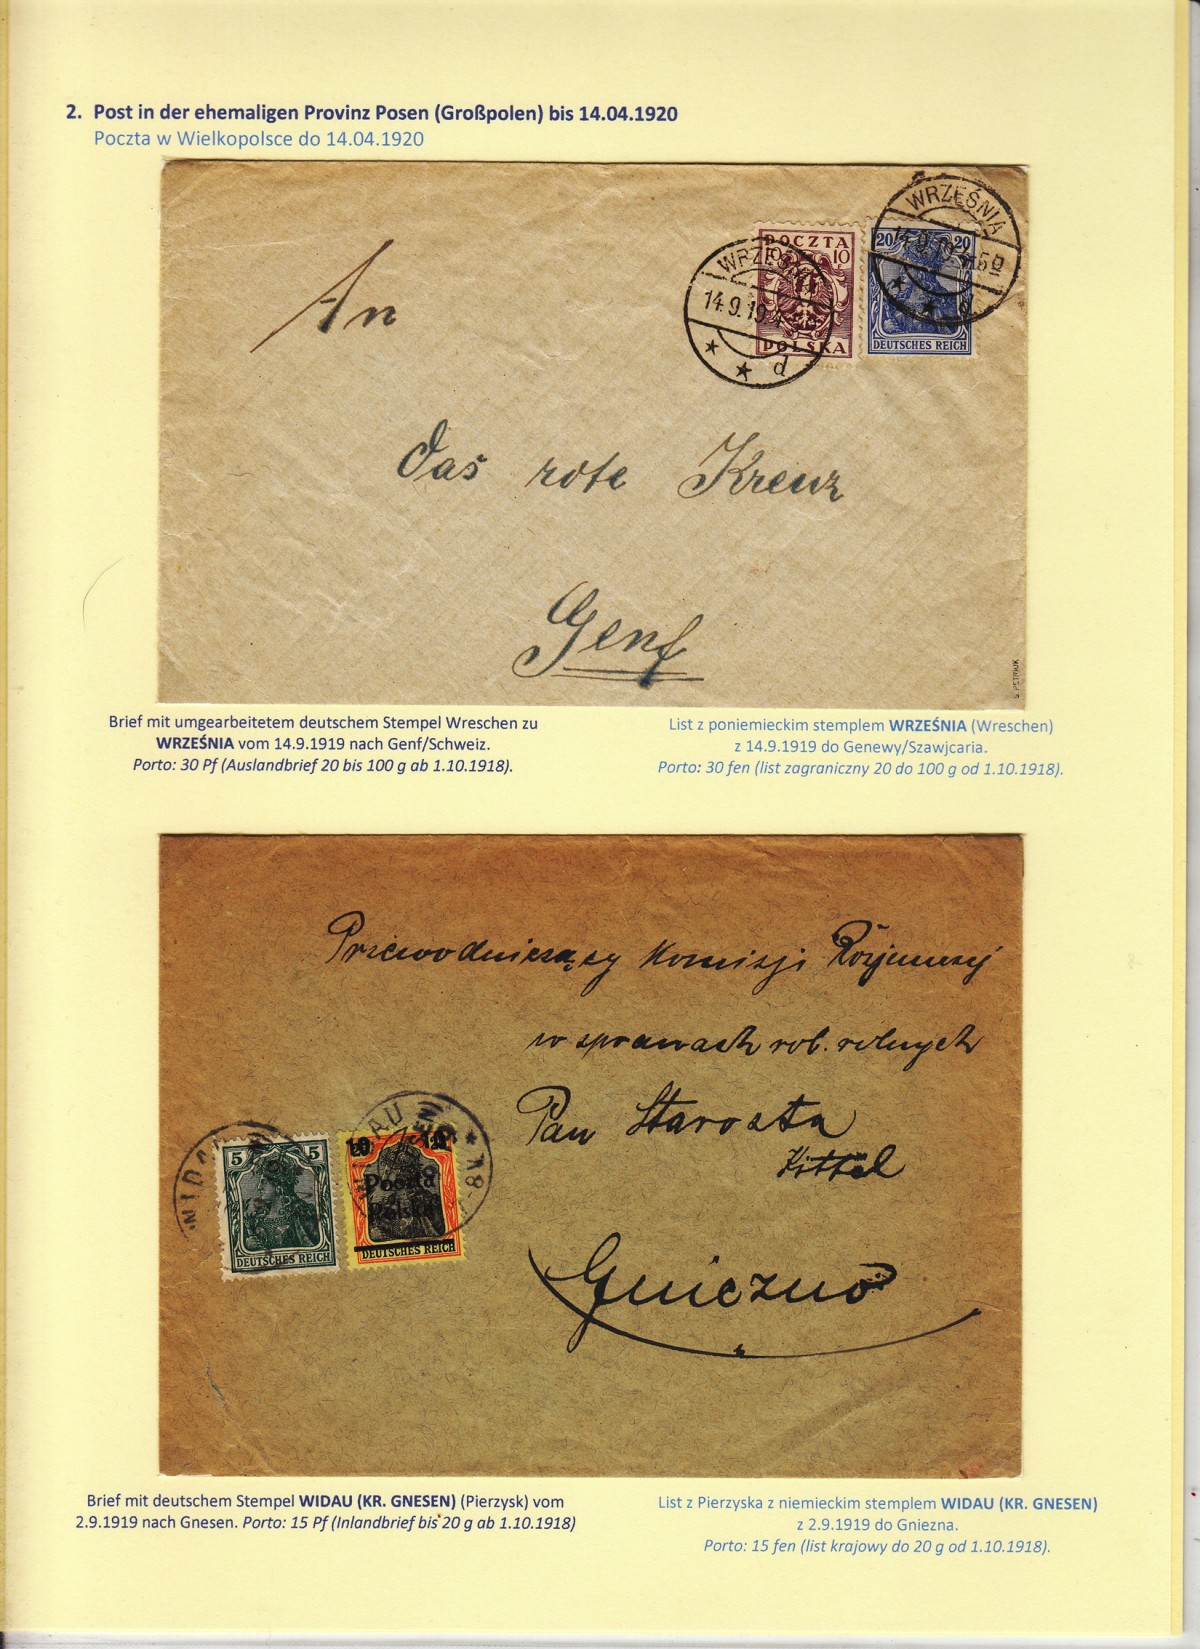 2. Post in der ehemaligen Provinz Posen (Großpolen) bis 14.04.1920
Poczta w Wielkopolsce do 14.04.1920
WRZEŚNIA
14.9.19
d
POCZTA
10 10
POLSKA
20 20
DEUTSCHES REICH
WRZEŚNIA
14.9.19
d
An
das rote Kreuz
Genf
S. PETRIUK
Brief mit umgearbeitetem deutschem Stempel Wreschen zu
WRZEŚNIA vom 14.9.1919 nach Genf/Schweiz.
Porto: 30 Pf (Auslandbrief 20 bis 100 g ab 1.10.1918).
List z poniemieckim stemplem WRZEŚNIA (Wreschen)
z 14.9.1919 do Genewy/Szawjcaria.
Porto: 30 fen (list zagraniczny 20 do 100 g od 1.10.1918).
Przewodniczący Komisji
w sprawach rob. rolnych
Pan Starosta
Kittel
Gniezno
WIDAU
5 5
DEUTSCHES REICH
10
Poczta
Polska
DEUTSCHES REICH
Brief mit deutschem Stempel WIDAU (KR. GNESEN) (Pierzysk) vom
2.9.1919 nach Gnesen. Porto: 15 Pf (Inlandbrief bis 20 g ab 1.10.1918)
List z Pierzyska z niemieckim stemplem WIDAU (KR. GNESEN)
z 2.9.1919 do Gniezna.
Porto: 15 fen (list krajowy do 20 g od 1.10.1918).